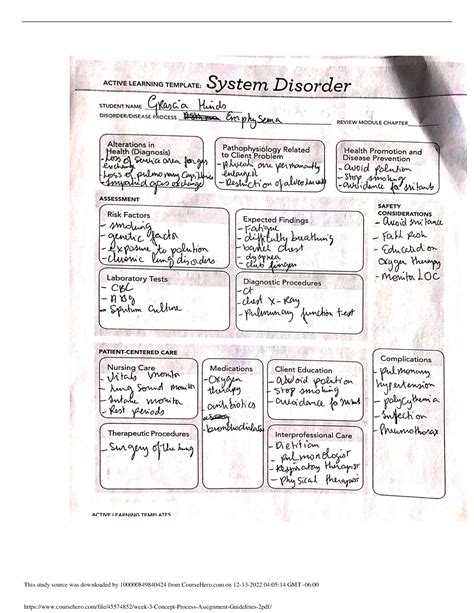 ACTIVE LEARNING TEMPLATE: System Disorder
STUDENT NAME Grascia Hinds
DISORDER/DISEASE PROCESS Emphysema
REVIEW MODULE CHAPTER
Alterations in
Health (Diagnosis)
- Loss of surface area for gas
exchange
- Loss of pulmonary capillaries
- Impaired gas exchange
Pathophysiology Related
to Client Problem
- alveoli are permanently
enlarged
- Destruction of alveolar
Health Promotion and
Disease Prevention
- avoid polution
- Stop smoking
- avoidance for irritants
ASSESSMENT
SAFETY
CONSIDERATIONS
Risk Factors
- smoking
- genetic factor
- exposure to polution
- chronic lung disorders
Expected Findings
- Fatigue
- difficulty breathing
- barrel chest
- dyspnea
- club finger
- avoid irritance
- Fall Risk
- Educated on
oxygen therapy
- Monitor LOC
Laboratory Tests
- CBC
- ABG
- Sputum Culture
Diagnostic Procedures
- CT
- chest X-Ray
- pulmonary function test
PATIENT-CENTERED CARE
Complications
Nursing Care
- Vitals monitor
- lung sound monitor
- Intake monitor
- Rest periods
Medications
- Oxygen
therapy
- antibiotics
- bronchodilator
Client Education
- avoid polution
- stop smoking
- avoidance for irritants
- pulmonary
hypertension
- polycythemia
- Infection
- Pneumothorax
Therapeutic Procedures
- Surgery of the lung
Interprofessional Care
- Dietitian
- pulmonologist
- Respiratory therapist
- physical therapist
ACTIVE LEARNING TEMPLATES
This study source was downloaded by 100000849840424 from CourseHero.com on 12-13-2022 04:05:14 GMT -06:00
https://www.coursehero.com/file/45574852/week-3-Concept-Process-Assignment-Guidelines-2pdf/